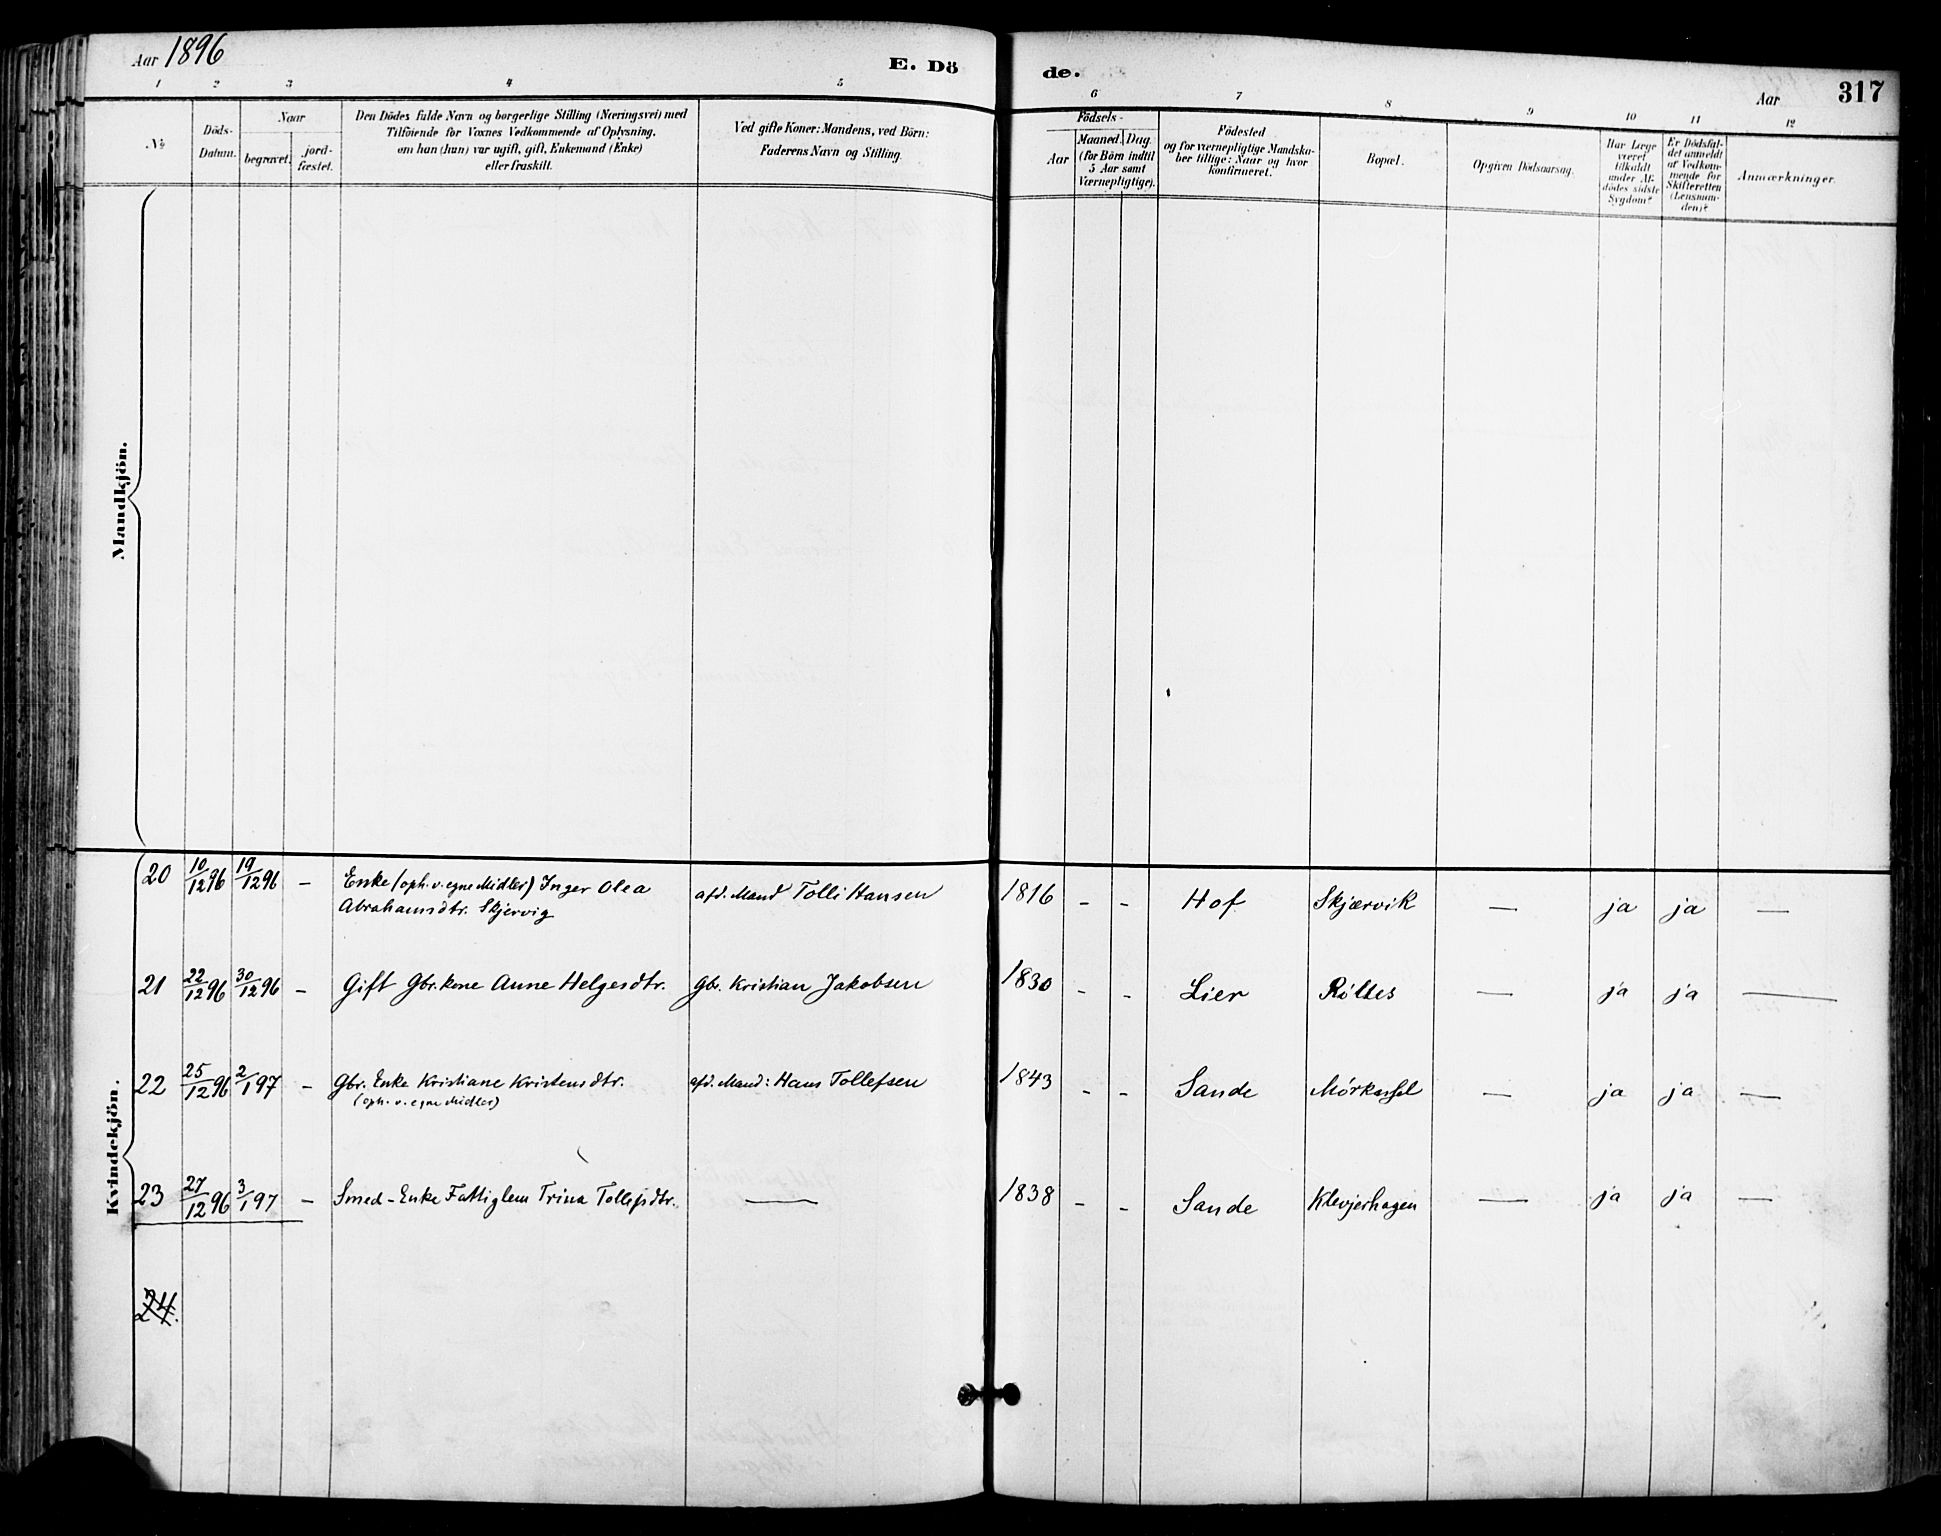 Aar 1896
E. Dö
de.
Aar
317
1 2 3 4 5
6 7 8 9 10 11 12
№
Döds-
Datum.
Naar
begravet.
jord-
fæstet.
Den Dödes fulde Navn og borgerlige Stilling (Næringsvei) med
Tilföiende for Voxnes Vedkommende af Oplysning,
om han (hun) var ugift, gift, Enkemand (Enke)
eller fraskilt.
Ved gifte Koner: Mandens, ved Börn:
Faderens Navn og Stilling.
Födsels-
Aar
Maaned. Dag.
(for Börn indtil
5 Aar samt
Værnepligtige).
Födested
og for værnepligtige Mandska-
ber tillige: Naar og hvor
konfirmeret.
Bopæl.
Opgiven Dödsaarsag.
Har Læge
været
tilkaldt
under Af-
dödes sidste
Sygdom?
Er Dödsfal-
det anmeldt
af Vedkom-
mende for
Skifteretten
(Lensman-
den)?
Anmærkninger.
Mandkjön.
Kvindekjön.
20 10/12 96 19/12 96 – Enke (oph. v. egne Midler) Inger Olea afd. Mand Tolli Hansen 1816 – – Hof Skjærvik — ja ja —
Abrahamsdtr. Skjervig
21 22/12 96 30/12 96 – Gift Gbr. kone Anne Helgesdtr. Gbr. Kristian Jakobsen 1830 – – Lier — ja ja —
22 25/12 96 2/1 97 – Gbr. Enke Kristiane Kristensdtr. afd. Mand: Hans Tollefsen 1843 – – Sande — ja ja —
(oph. v. egne Midler)
23 27/12 96 3/1 97 – Smed-Enke Fattiglem Trina Tollefsdtr. — 1838 – – Sande Klevjerhagen — ja ja —
24.